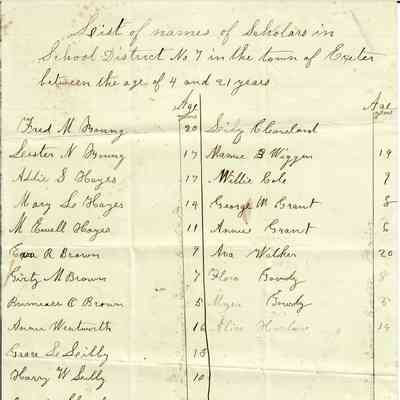 List of names of Scholars in
School District No 7 in the town of Exeter
between the age of 4 and 21 years
Age
Age
Fred M Young 20
Lester N Young 17
Addie S Hayes 17
Mary L Hayes 14
M Ewell Hayes 11
Eva R Brown 9
Girty M Brown 7
C Brown 5
Annie Wentworth 16
Grace L 15
Harry W 10
Cleaveland
Mamie B Wiggin 19
Willie Cole 9
George W Grant 8
Annie Grant 6
Ava Walker 20
Flora
Alice